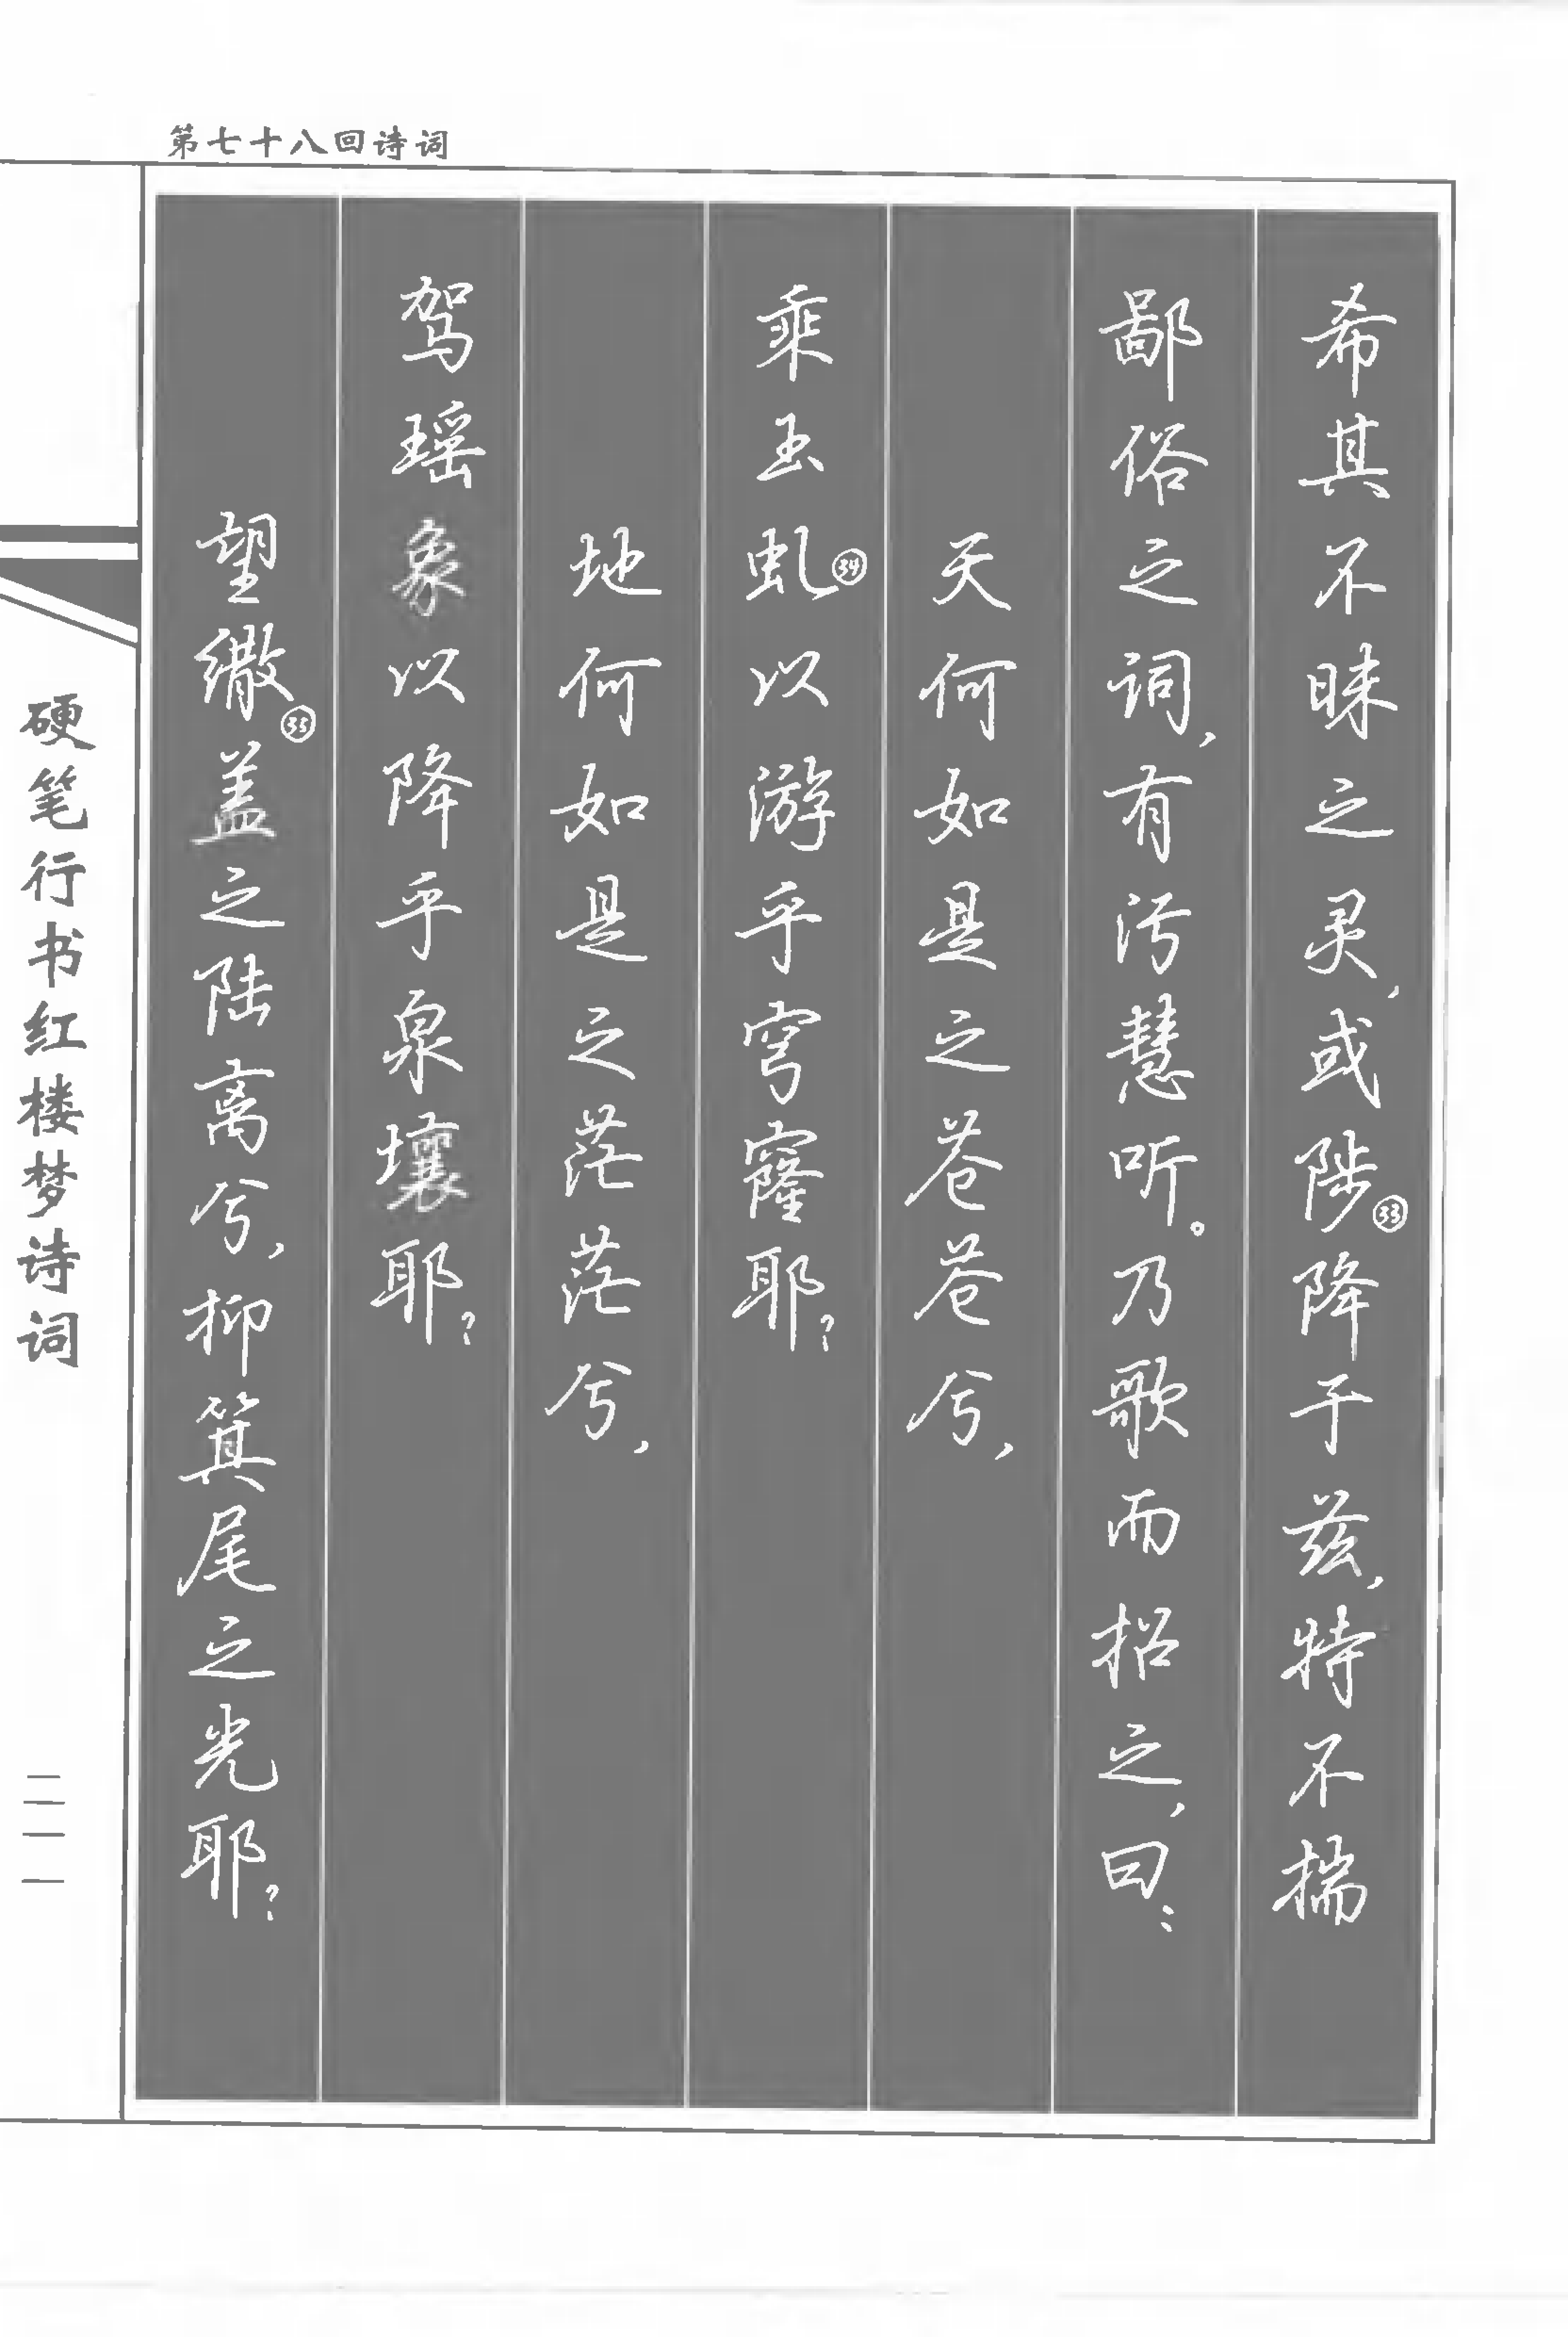 第七十八回诗词
希其不昧之灵，或陟㉝降于兹，特不揣
鄙俗之词，有污慧听。乃歌而招之，曰：
天何如是之苍苍兮，
乘玉虬㉞以游乎穹窿耶？
地何如是之茫茫兮，
驾瑶象以降乎泉壤耶？
望繖㉟盖之陆离兮，抑箕尾之光耶？
硬笔行书红楼梦诗词
二一一